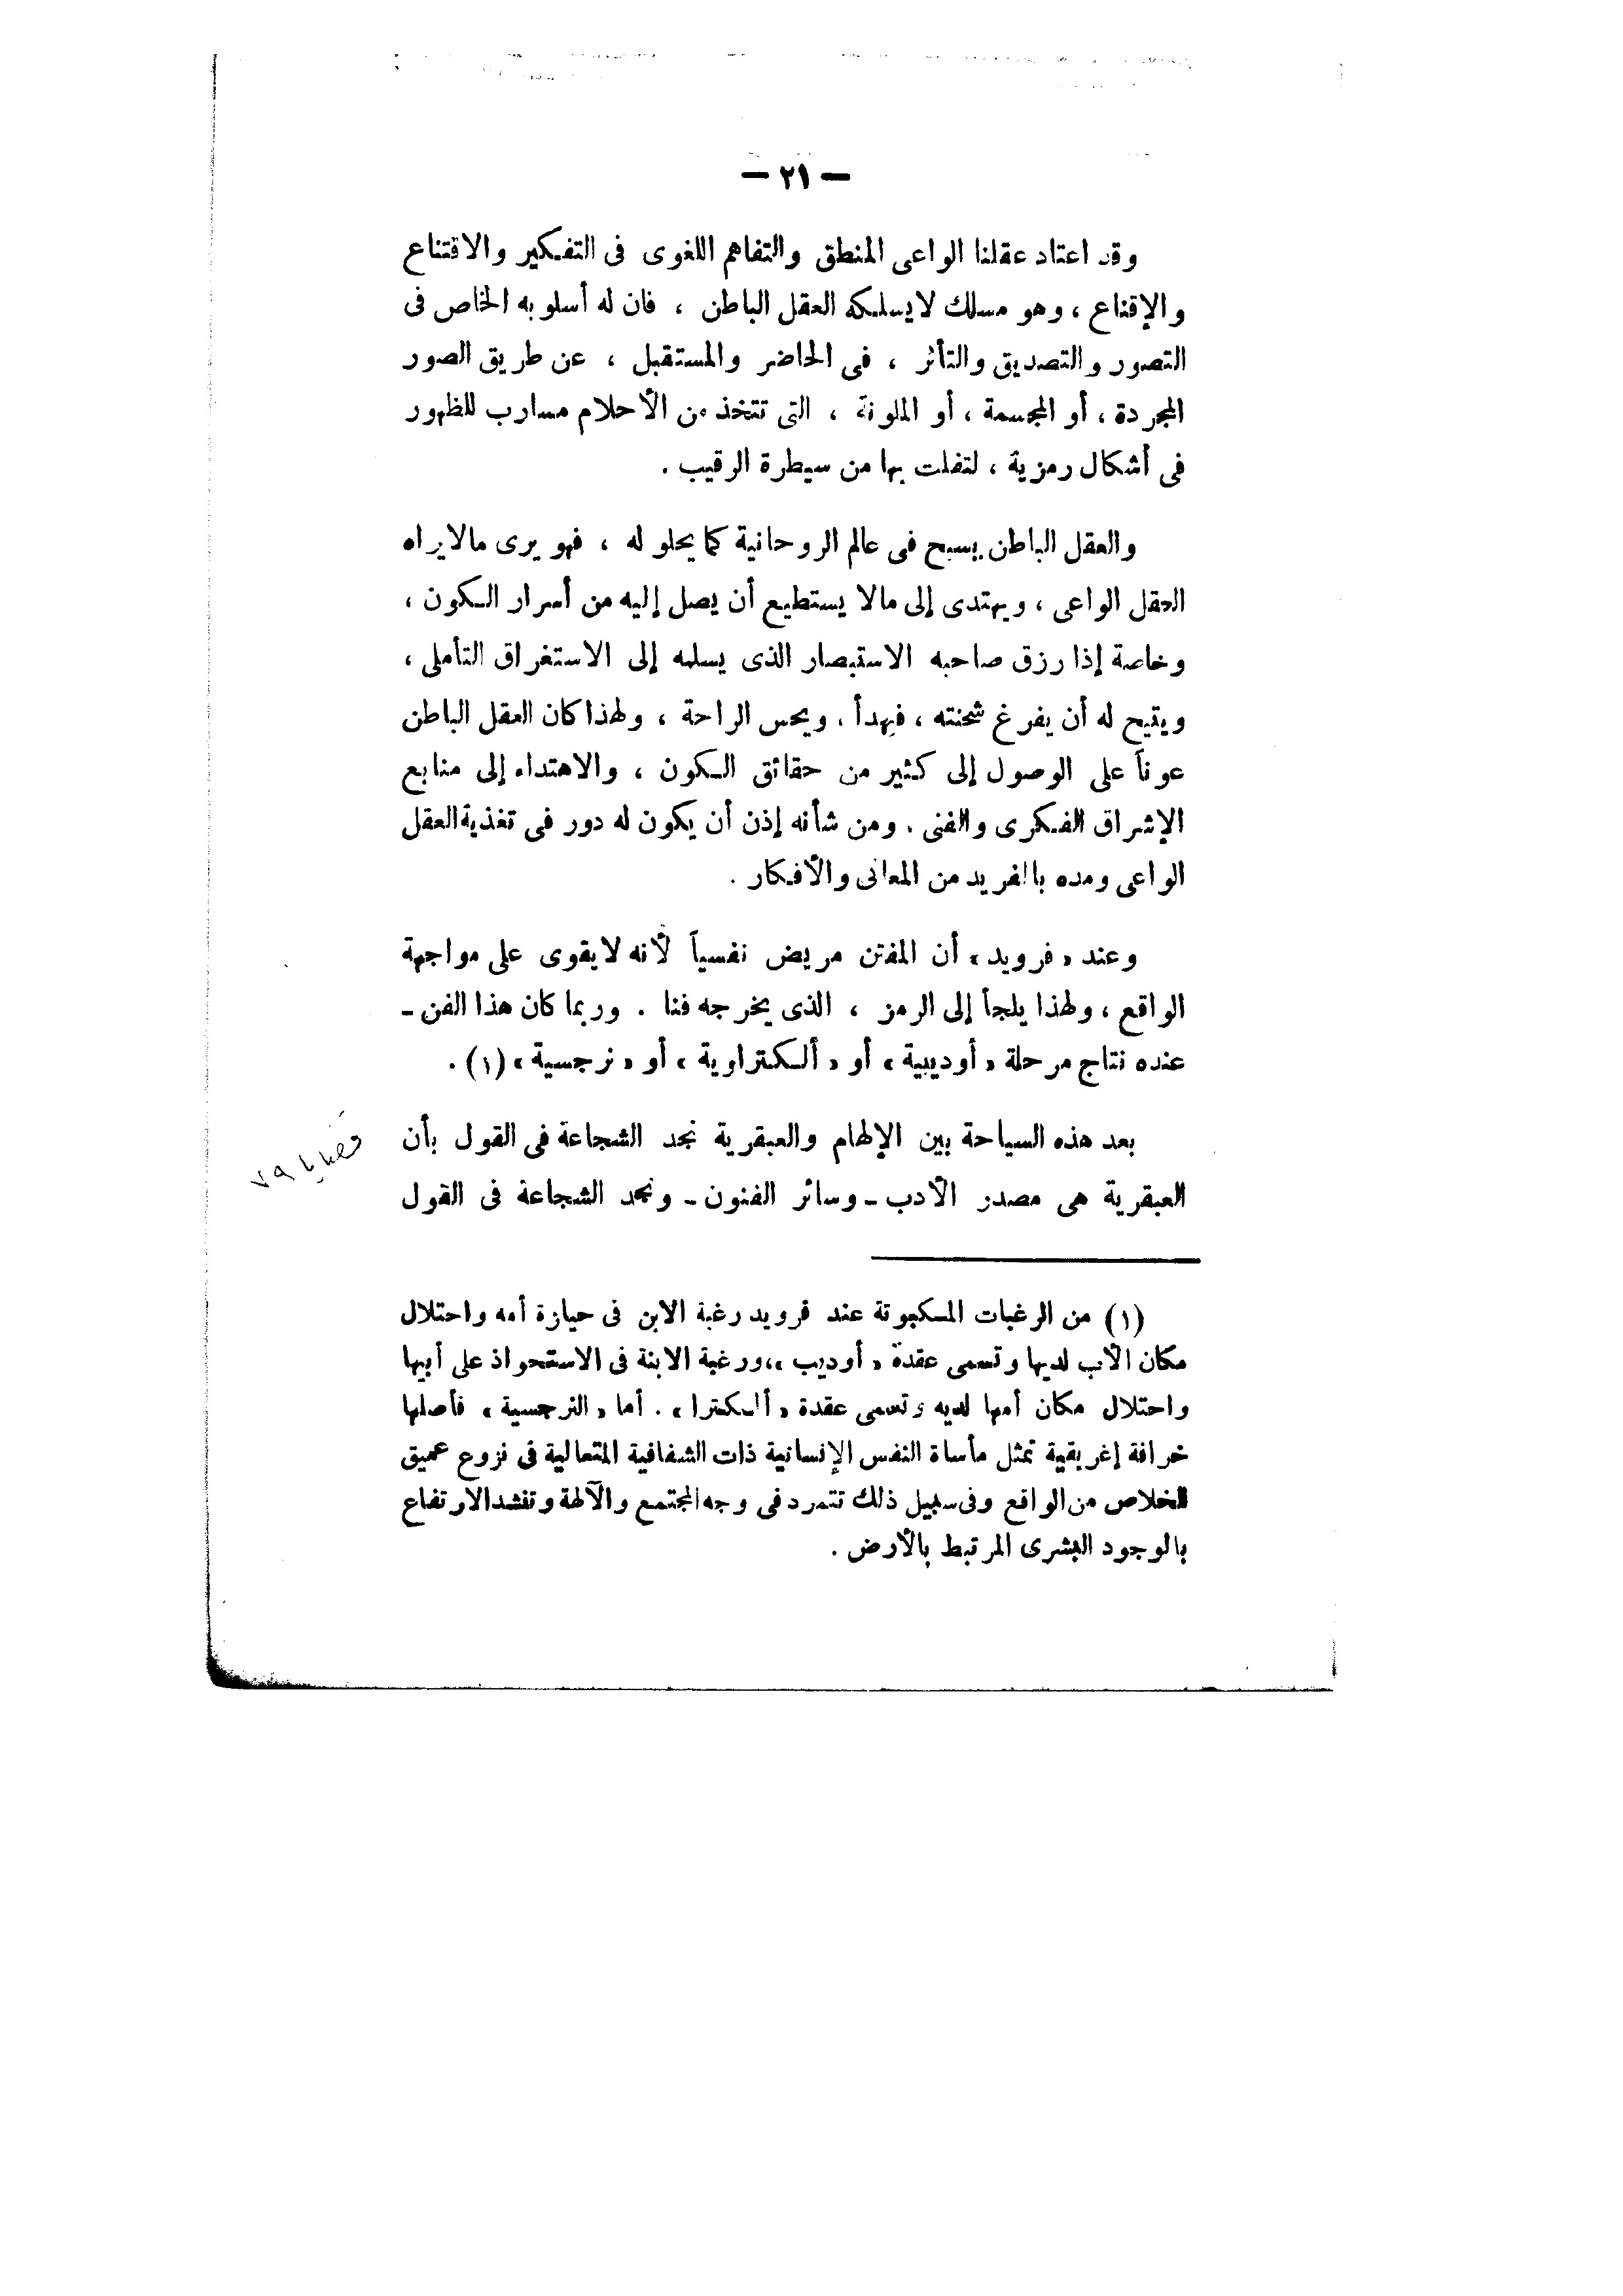 — ٢١ —
وقد اعتاد عقلنا الواعى المنطق والتفاهم اللغوى فى التفكير والاقتناع
والإقناع ، وهو مسلك لا يسلكه العقل الباطن ، فان له أسلوبه الخاص فى
التصور والتصديق والتأثر ، فى الحاضر والمستقبل ، عن طريق الصور
المجردة ، أو المجسمة ، أو الملونة ، التى تتخذ من الأحلام مسارب للظهور
فى أشكال رمزية ، لتفلت بها من سيطرة الرقيب .
والعقل الباطن يسبح فى عالم الروحانية كما يحلو له ، فهو يرى مالا يراه
العقل الواعى ، ويهتدى إلى مالا يستطيع أن يصل إليه من أسرار الكون ،
وخاصة إذا رزق صاحبه الاستبصار الذى يسلمه إلى الاستغراق التأملى ،
ويتيح له أن يفرغ شحنته ، فيهدأ . ويحس الراحة ، ولهذا كان العقل الباطن
عوناً على الوصول إلى كثير من حقائق الكون ، والاهتداء إلى منابع
الإشراق الفكرى والفنى . ومن شأنه إذن أن يكون له دور فى تغذية العقل
الواعى ومده بالفريد من المعانى والأفكار .
وعند « فرويد » أن المفتن مريض نفسياً لأنه لا يقوى على مواجهة
الواقع ، ولهذا يلجأ إلى الرمز ، الذى يخرجه فنا . وربما كان هذا الفن ـ
عنده نتاج مرحلة « أوديبية » أو « ألكتراوية » أو « نرجسية » (١) .
بعد هذه السياحة بين الإلهام والعبقرية نجد الشجاعة فى القول بأن
العبقرية هى مصدر الأدب ـ وسائر الفنون ـ ونجد الشجاعة فى القول
(١) من الرغبات المكبوتة عند فرويد رغبة الابن فى حيازة أمه واحتلال
مكان الأب لديها وتسمى عقدة « أوديب »، ورغبة الابنة فى الاستحواذ على أبيها
واحتلال مكان أمها لديه وتسمى عقدة « ألكترا » . أما « النرجسية » فأصلها
خرافة إغريقية تمثل مأساة النفس الإنسانية ذات الشفافية المتعالية فى نزوع عميق
للخلاص من الواقع وفى سبيل ذلك تتمرد فى وجه المجتمع والآلهة وتنشد الارتفاع
بالوجود البشرى المرتبط بالأرض .